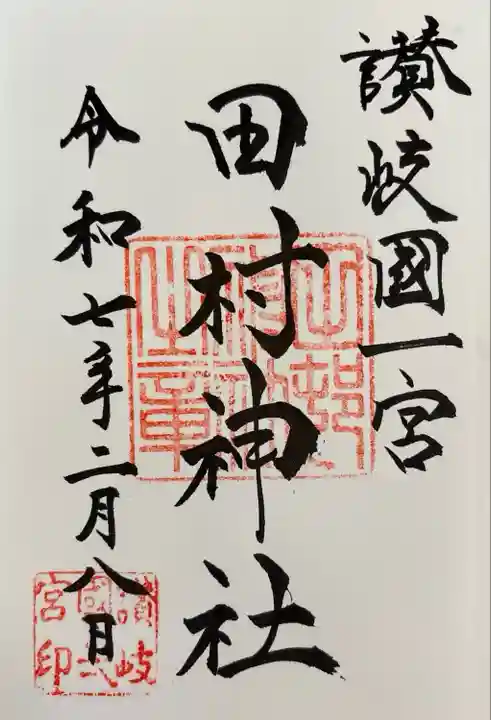 讃岐國一宮
田村神社
令和七年二月八日
之章
讃岐
國弌
宮印